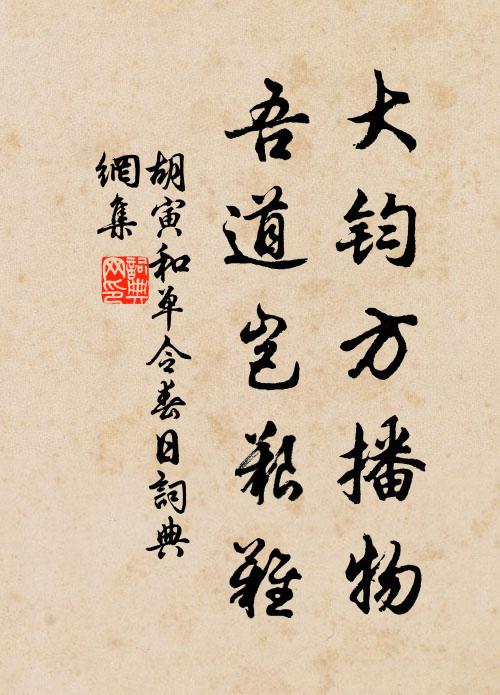 大钧方播物
吾道岂艱難
胡寅和单令春日詞典
網集
詞典網印